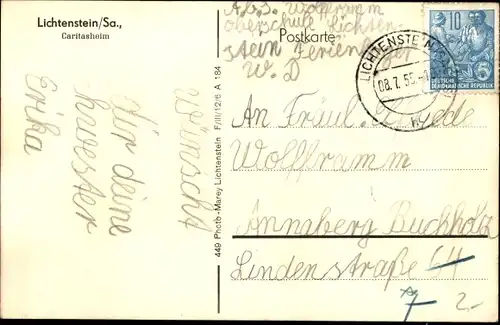 Lichtenstein/Sa.,
Caritasheim
Wünscht
Dir deine
Schwester
Erika
449 Photo-Marey Lichtenstein F/III/12/6 A 184
Postkarte
Abs. Wolfframm
oberschule Lichten-
stein Ferienlager
W. D
10
6
DEUTSCHE
DEMOKRATISCHE REPUBLIK
LICHTENSTEIN
08.7.55
An Fräul.
Wolfframm
Annaberg Buchholz
Lindenstraße 64
7
2-